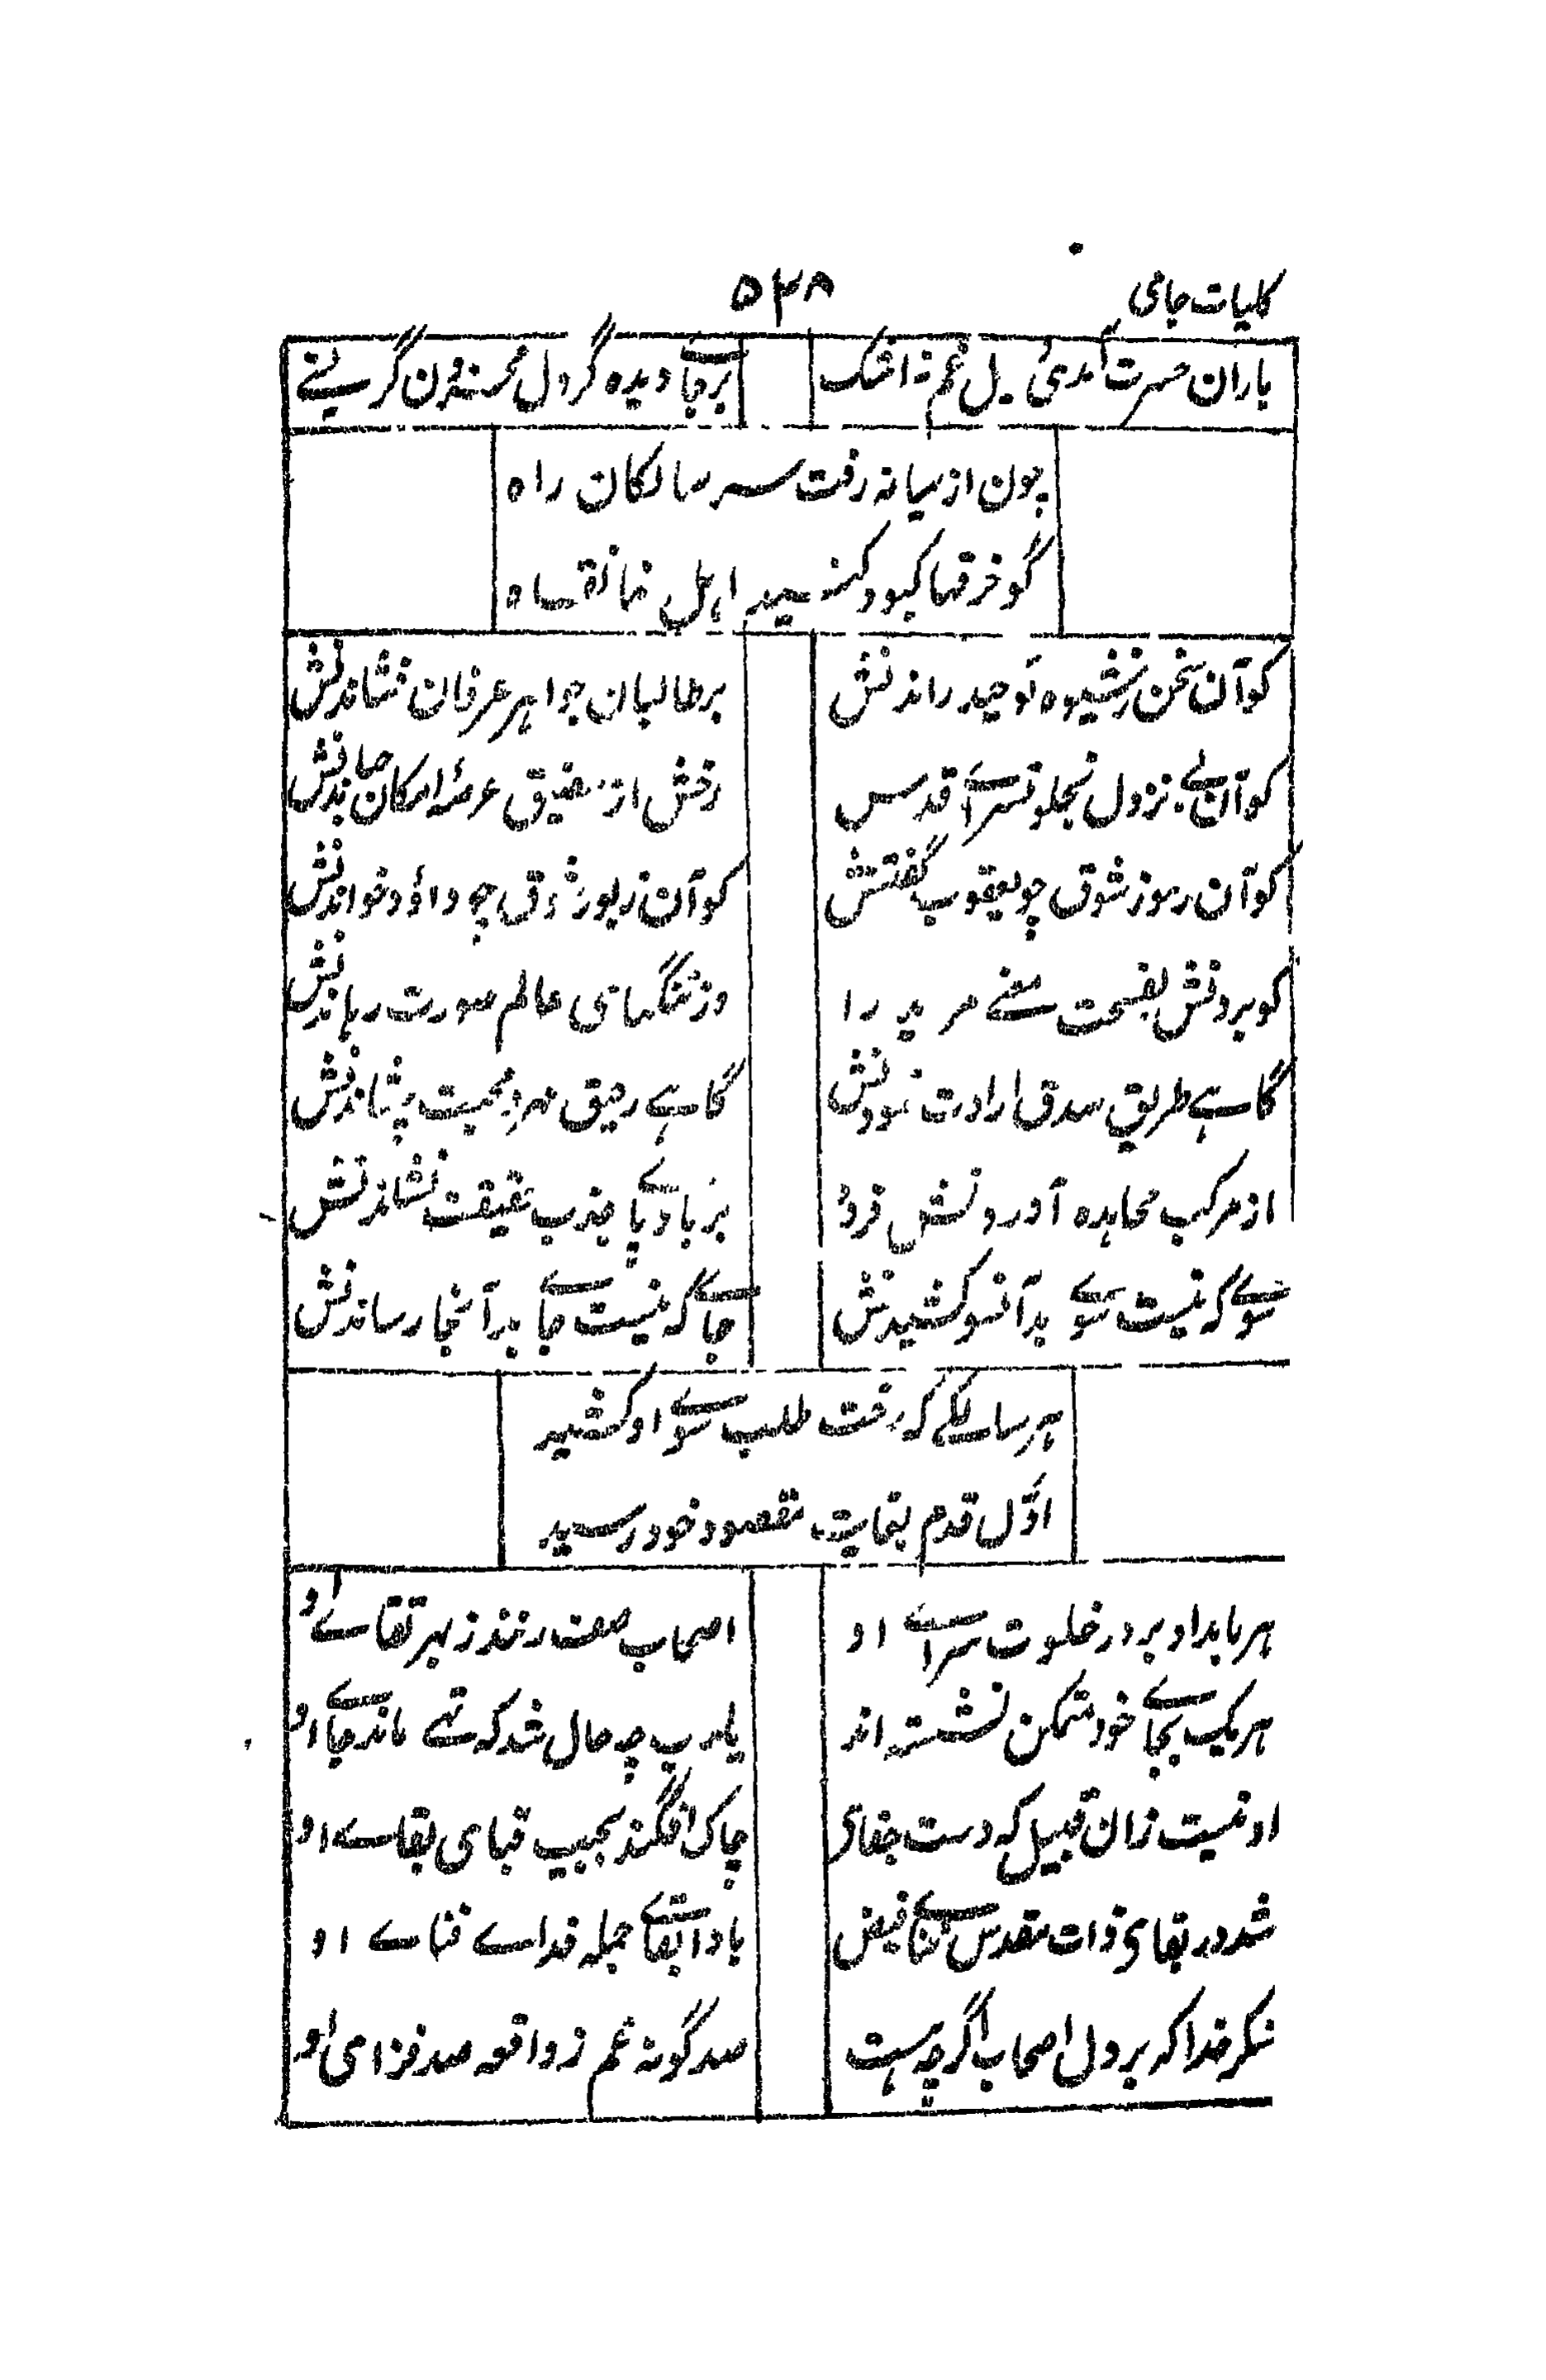 کلیات جامی
۵۳۸
باران حسرت آمدی و سیل غم نه اشک
برجاے دیده گر دل محزون گریستے
چون از میانه رفت سر سالکان راه
گو خرقها کبود کنید اهل خانقاه
کو آن سخن ز شیوه توحید راندنش
بر طالبان جواهر عرفان فشاندنش
کو آن بے نزول بخلوتسراے قدس
رخش از مضیق عرصۀ امکان جهاندنش
کو آن رموز شوق چو یعقوب گفتنش
کو آن زبور ذوق چو داؤد خواندنش
کو بردنش بفسحت معنے مرید را
وز تنگنای عالم صورت رهاندنش
گاهے طریق صدق ارادت نمودنش
گاهے رحیق مهر و محبت چشاندنش
از مرکب مجاهده آوردنش فرود
بر بادپاے جذب حقیقت نشاندنش
سوے که نیست سوے بدآنسو کشیدنش
جاے که نیست جا بدآنجا رساندنش
هر سالکے که رخت طلب سوے او کشید
اوّل قدم بغایت مقصود خود رسید
هر بامداد بر در خلوت سراے او
اصحاب صف زنند ز بهر لقاے او
هر یک بجاے خود متمکن نشسته اند
یارب چه حال شد که تهے ماند جاے او
او نیست زان قبیل که دست جفای
چاک افگند بجیب قبای بقاے او
شد در بقای ذات مقدس فناے فیض
بادا بقاے جمله فداے فناے او
شکر خدا که بر دل اصحاب اگرچه هست
صد گونه غم ز واقعه صد فزای او